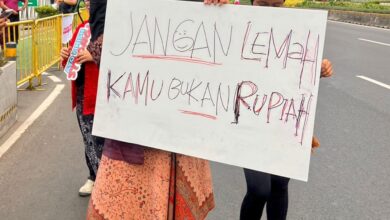 JANGAN LEMAH
KAMU BUKAN RUPIAH